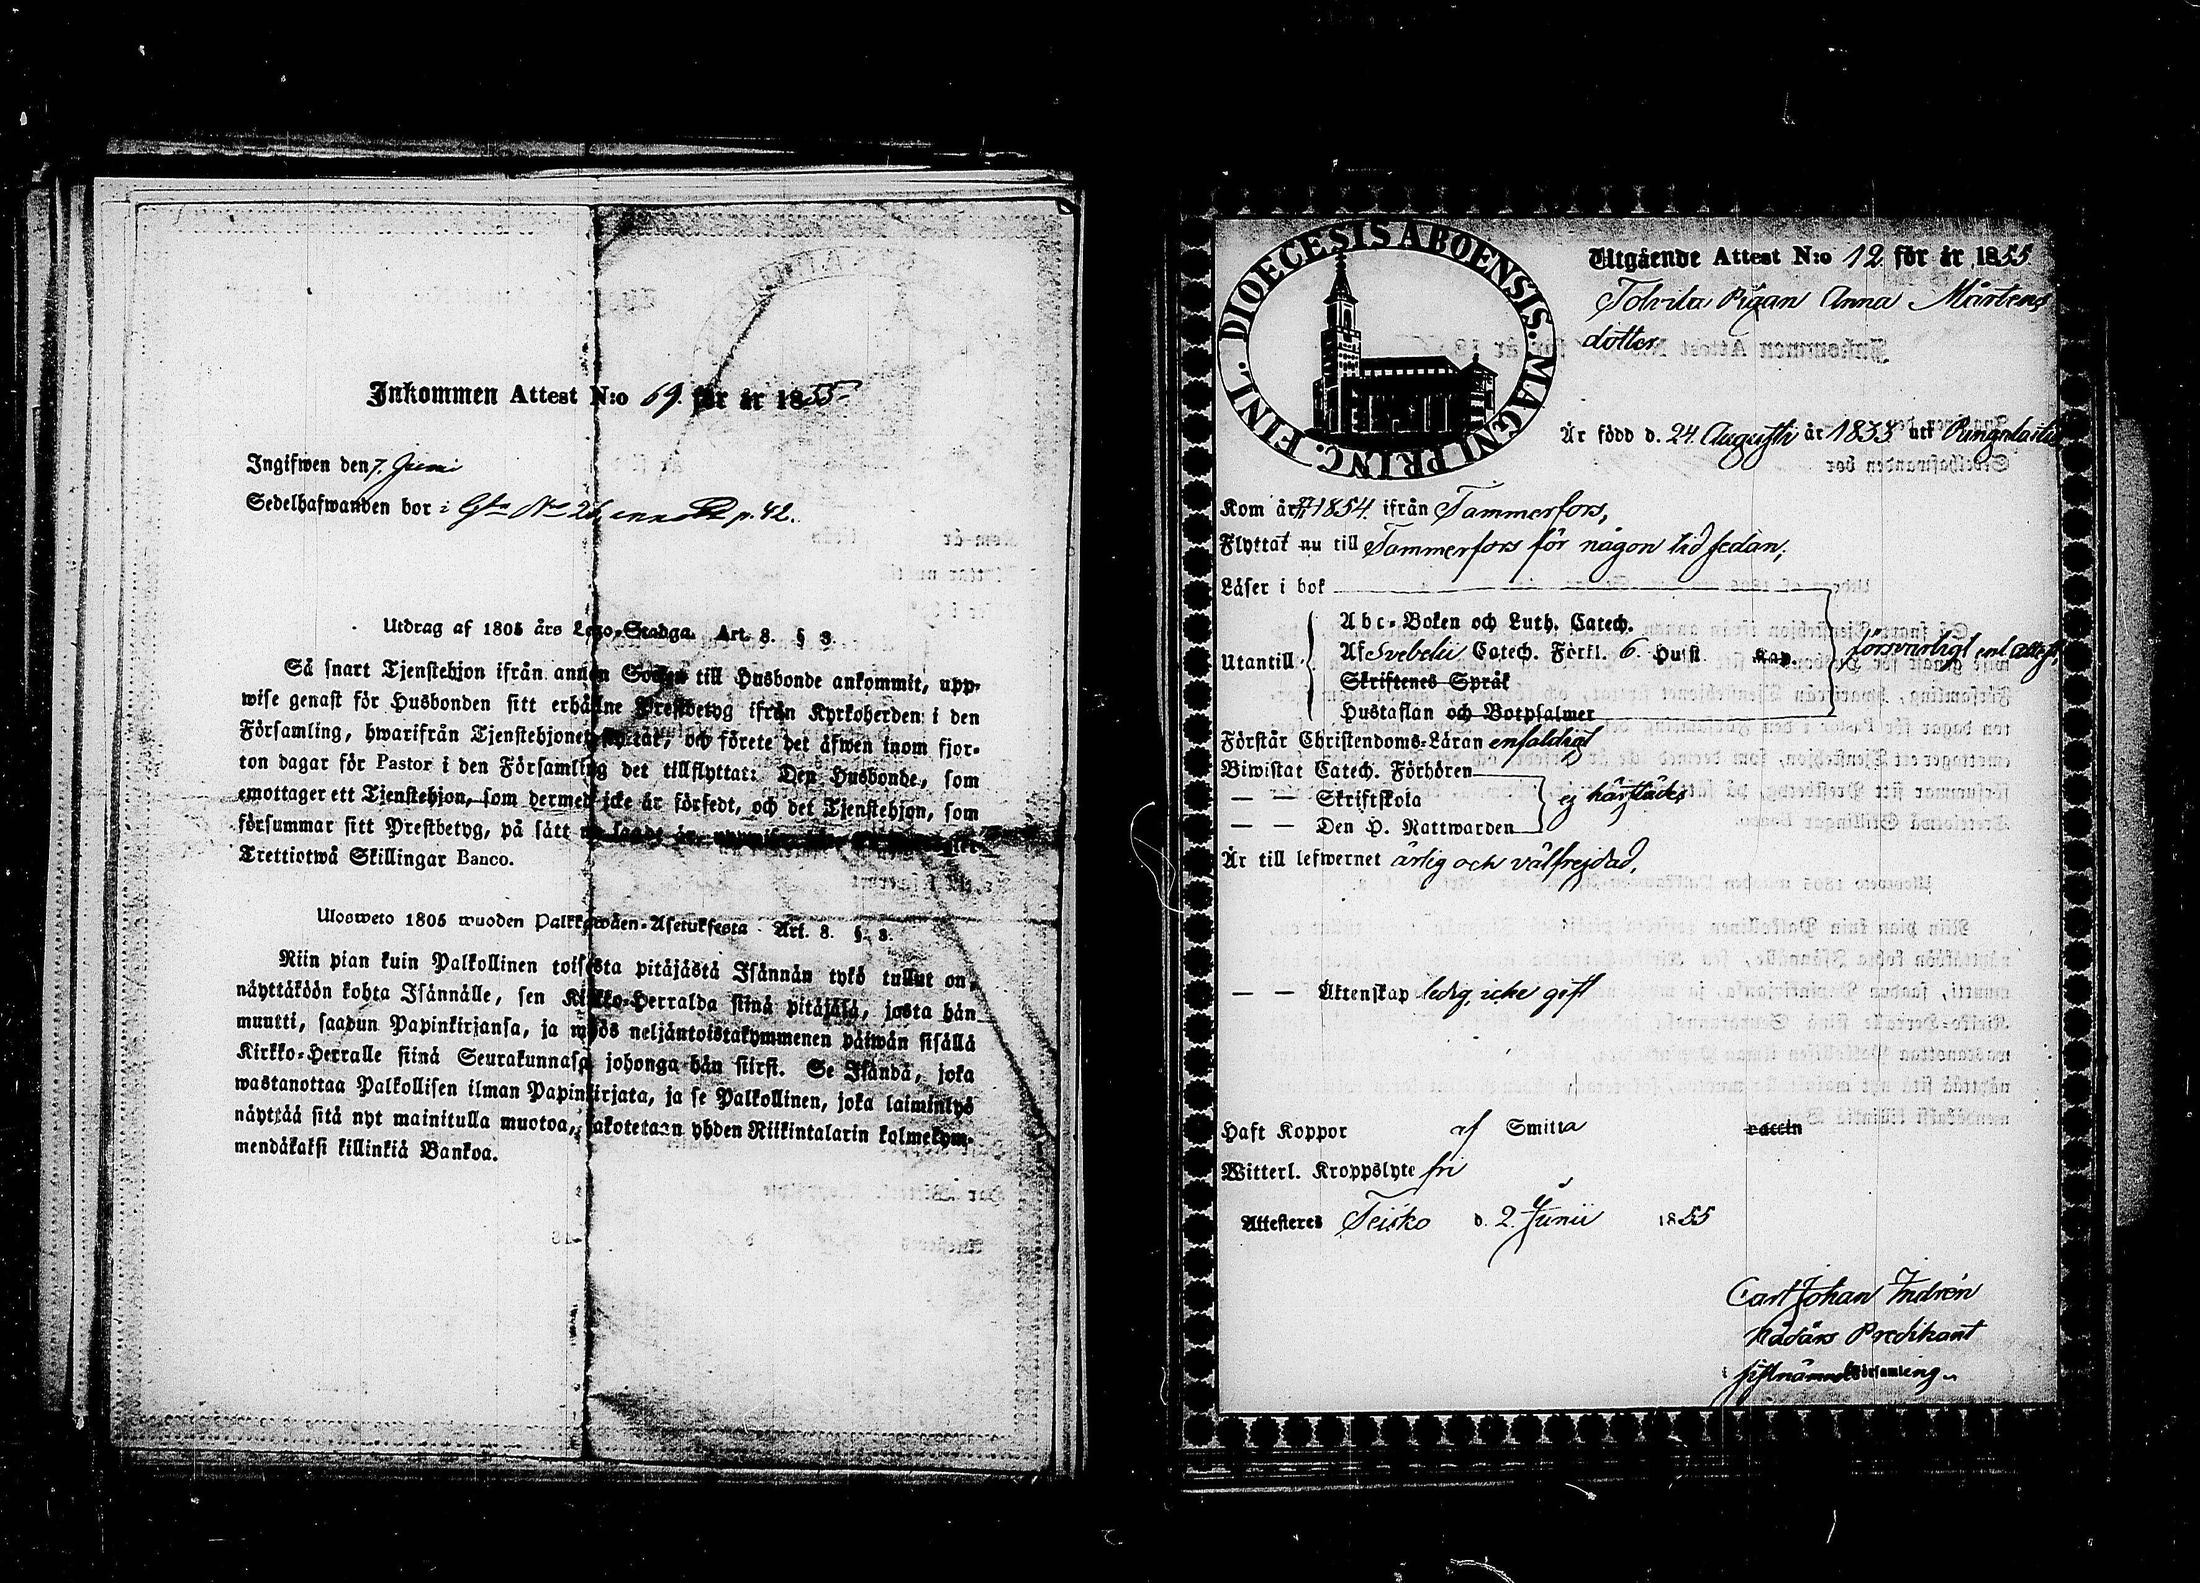 Inkommen Attest N:o 69. för år 1855
Ingifwen den 7. Juni
Sedelhafwanden bor i Gn No 26, p. 42.
Utdrag af 1805 års Lego-Stadga. Art. 8. § 3.
Så snart Tjenstehjon ifrån annan Socken till Husbonde ankommit, upp-
wise genast för Husbonden sitt erhållne Prestbetyg ifrån Kyrkoherden i den
Församling, hwarifrån Tjenstehjonet flyttat, och förete det äfwen inom fjor-
ton dagar för Pastor i den Församling det tillflyttat: Den Husbonde, som
emottager ett Tjenstehjon, som dermed icke är försedt, och det Tjenstehjon, som
försummar sitt Prestbetyg, på sätt nu sagdt är,
Trettiotwå Skillingar Banco.
Ulosweto 1805 wuoden Palkkawäen-Asetuksesta Art. 8. §. 3.
Niin pian kuin Palkollinen toisesta pitäjästä Isännän tykö tullut on,
näyttäköön kohta Isännälle, sen Kirkko-Herralda siinä pitäjäsä, josta hän
muutti, saadun Papinkirjansa, ja myös neljäntoistakymmenen päiwän sisällä
Kirkko-Herralle siinä Seurakunnasa johonga hän siirsi. Se Isändä, joka
wastanottaa Palkollisen ilman Papinkirjata, ja se Palkollinen, joka laiminlyö
näyttää sitä nyt mainitulla muotoa, sakotetaan yhden Riikintalarin kolmekym-
mendäkaksi killinkiä Bankoa.
DIOECESIS ABOENSIS. MAGNI PRINC. FINL.
Utgående Attest N:o 12 för år 1855
Tolvila Pigan Anna Mårtens
dotter
Är född d. 24 Augusti år 1833 uti
Kom år 1854 ifrån Tammerfors,
Flyttat nu till Tammerfors för någon tid sedan,
Läser i bok
Utantill
Abc-Boken och Luth. Catech.
Af Svebelii Catech. Förkl. 6. Hufst. Kap. försvarligt enl attest,
Skriftenes Språk
Hustaflan och Botpsalmer
Förstår Christendoms-Läran enfaldigt
Biwistat Catech. Förhören
— — Skriftskola ej härstädes
— — Den H. Nattwarden
Är till lefwernet ärlig och välfrejdad,
— — Äktenskap ledig, icke gift
Haft Koppor af Smitta vaccin
Witterl. Kroppslyte fri
Attesteres Teisko d. 2. Junii 1855
Carl Johan Indrén
Nådårs Predikant
i församling